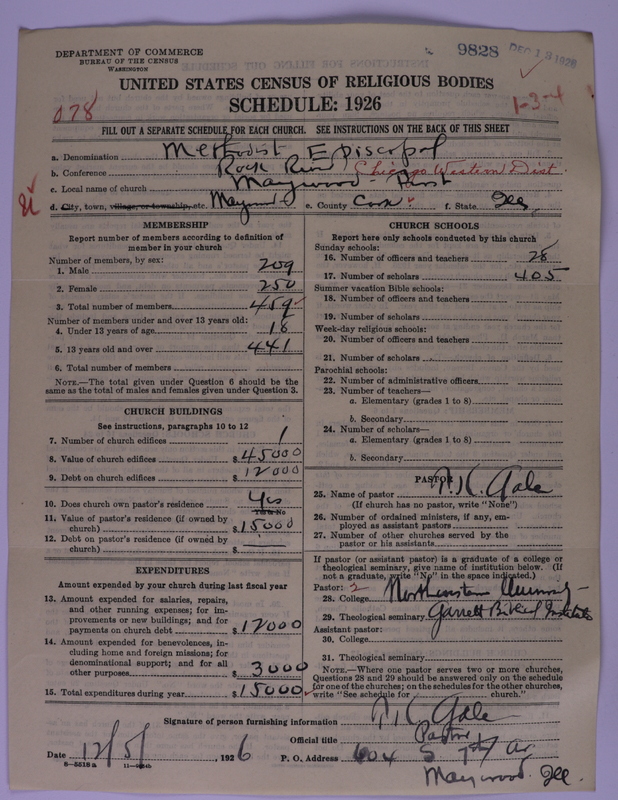 DEPARTMENT OF COMMERCE
BUREAU OF THE CENSUS
WASHINGTON
9828 DEC 13 1926
UNITED STATES CENSUS OF RELIGIOUS BODIES
SCHEDULE: 1926
078
1-3-4
FILL OUT A SEPARATE SCHEDULE FOR EACH CHURCH. SEE INSTRUCTIONS ON THE BACK OF THIS SHEET
a. Denomination Methodist Episcopal
b. Conference Rock River Chicago Western Dist.
c. Local name of church Maywood First
d. City, town, village, or township, etc. Maywood e. County Cook f. State Ill.
MEMBERSHIP
Report number of members according to definition of
member in your church
Number of members, by sex:
1. Male 209
2. Female 250
3. Total number of members 459
Number of members under and over 13 years old:
4. Under 13 years of age 18
5. 13 years old and over 441
6. Total number of members
NOTE.—The total given under Question 6 should be the
same as the total of males and females given under Question 3.
CHURCH BUILDINGS
See instructions, paragraphs 10 to 12
7. Number of church edifices 1
8. Value of church edifices $45000
9. Debt on church edifices $12000
10. Does church own pastor's residence Yes
Yes or No
11. Value of pastor's residence (if owned by
church) $15000
12. Debt on pastor's residence (if owned by
church) $
EXPENDITURES
Amount expended by your church during last fiscal year
13. Amount expended for salaries, repairs,
and other running expenses; for im-
provements or new buildings; and for
payments on church debt $12000
14. Amount expended for benevolences, in-
cluding home and foreign missions; for
denominational support; and for all
other purposes $3000
15. Total expenditures during year $15000
CHURCH SCHOOLS
Report here only schools conducted by this church
Sunday schools:
16. Number of officers and teachers 28
17. Number of scholars 405
Summer vacation Bible schools:
18. Number of officers and teachers
19. Number of scholars
Week-day religious schools:
20. Number of officers and teachers
21. Number of scholars
Parochial schools:
22. Number of administrative officers
23. Number of teachers—
a. Elementary (grades 1 to 8)
b. Secondary
24. Number of scholars—
a. Elementary (grades 1 to 8)
b. Secondary
PASTOR
25. Name of pastor Gale
(If church has no pastor, write "None")
26. Number of ordained ministers, if any, em-
ployed as assistant pastors
27. Number of other churches served by the
pastor or his assistants
If pastor (or assistant pastor) is a graduate of a college or
theological seminary, give name of institution below. (If
not a graduate, write "No" in the space indicated.)
Pastor: 2
28. College Northwestern University
29. Theological seminary Garrett Biblical Institute
Assistant pastor:
30. College
31. Theological seminary
NOTE.—Where one pastor serves two or more churches,
Questions 28 and 29 should be answered only on the schedule
for one of the churches; on schedules for the other churches,
write "See schedule for church."
Signature of person furnishing information Gale
Official title Pastor
Date 12/5/, 1926 P. O. Address 604 S 7th Av
Maywood. Ill.